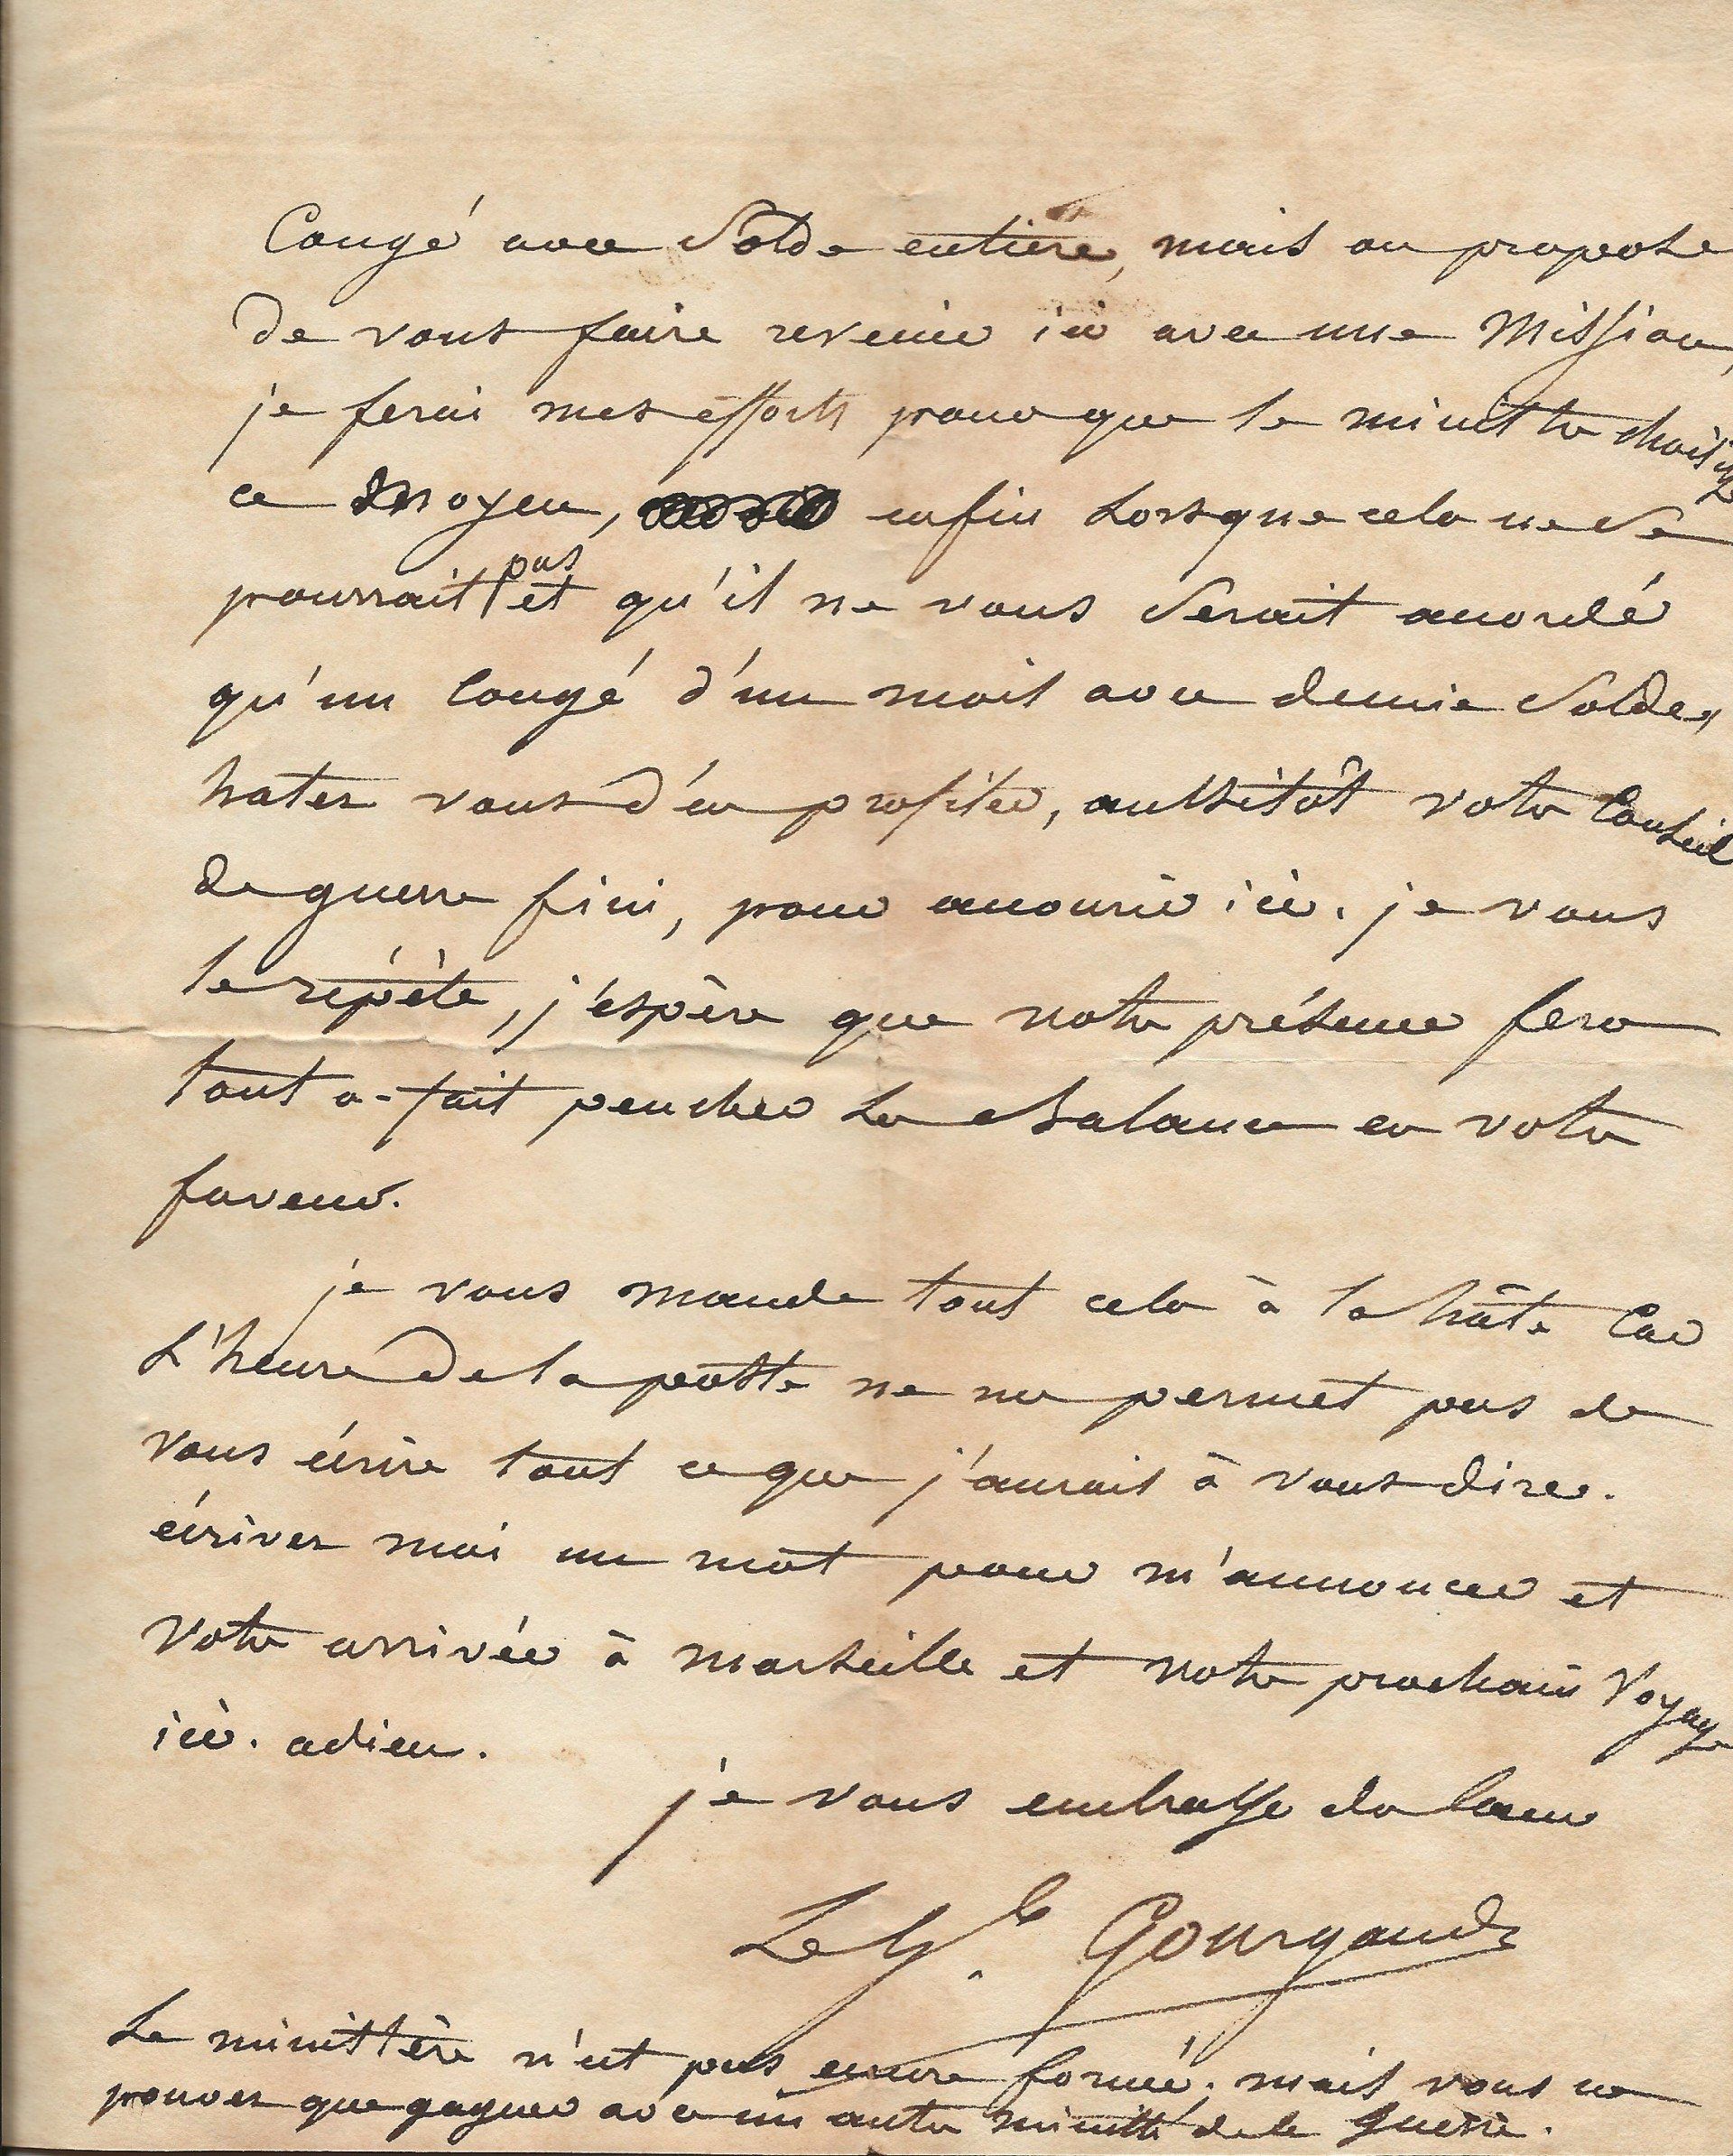 Congé avec Solde entière, mais on propose
de vous faire revenir ici avec une Mission,
je ferai mes efforts pour que le ministre choisisse
ce moyen, enfin Lorsque cela ne Se
pourrait pas et qu'il ne vous Serait accordé
qu'un Congé d'un mois avec demie Solde,
hatez vous d'en profiter, aussitôt votre Conseil
de guerre fini, pour accourir ici. je vous
le répète, j'espère que votre présence fera
tout a-fait pencher La Balance en votre
faveur.
je vous mande tout cela à la hâte Car
L'heure de la poste ne me permet pas de
vous écrire tout ce que j'aurais à vous dire.
écrivez moi un mot pour m'annoncer et
votre arrivée à marseille et votre prochain Voyage
ici. adieu.
je vous embrasse de Coeur
Le Gal. Gourgaud
Le ministère n'est pas encore formé; mais vous ne
pouvez que gagner avec un autre ministre de la guerre.